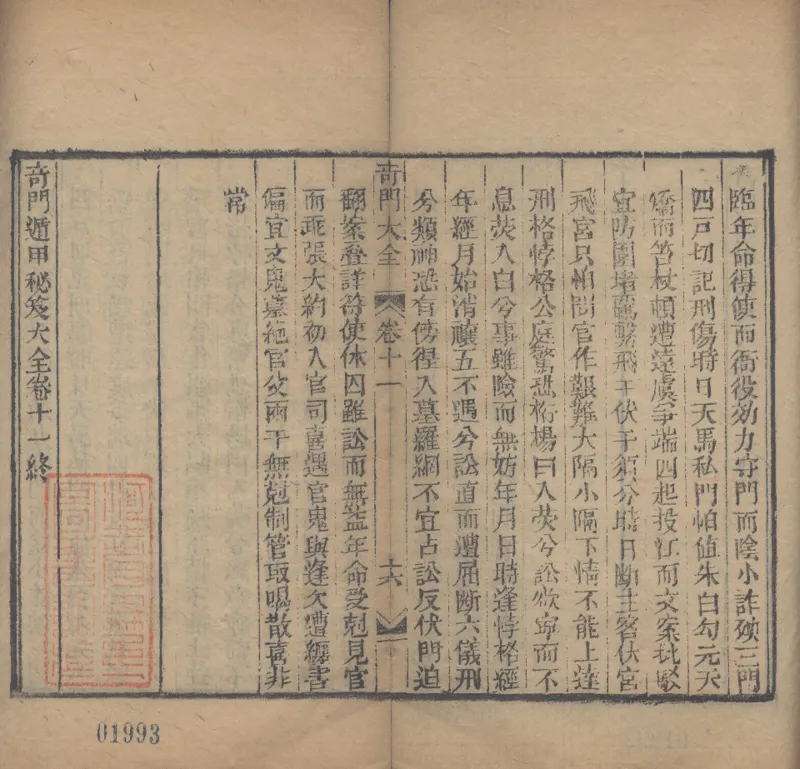 臨年命得使而衙役効力守門而陰小詐殃三門
四戸切記刑傷時日天馬私門怕值朱白勾元天
矯而笞杖頓遭遠虞爭端四起投江而文案批駁
宜防圍堵羈繫飛干伏干須分時日斷主客伏宮
飛宮只怕問官作艱難大隔小隔下情不能上達
刑格悖格公庭驚恐桁楊曰入熒兮訟欲寧而不
息熒入白兮事雖險而無妨年月日時逢悖格經
年經月始消禳五不遇兮訟直而遭屈斷六儀刑
兮類神恐有傍徨入墓羅網不宜占訟反伏門迫
奇門大全 卷十一 十六
翻案疊詳符使休囚雖訟而無益年命受剋見官
而乖張大約初入官司喜遇官鬼與逢欠遭纏害
偏宜文鬼墓絕官父兩干無剋制管取喝散喜非
常
奇門遁甲秘笈大全卷十一終
01993